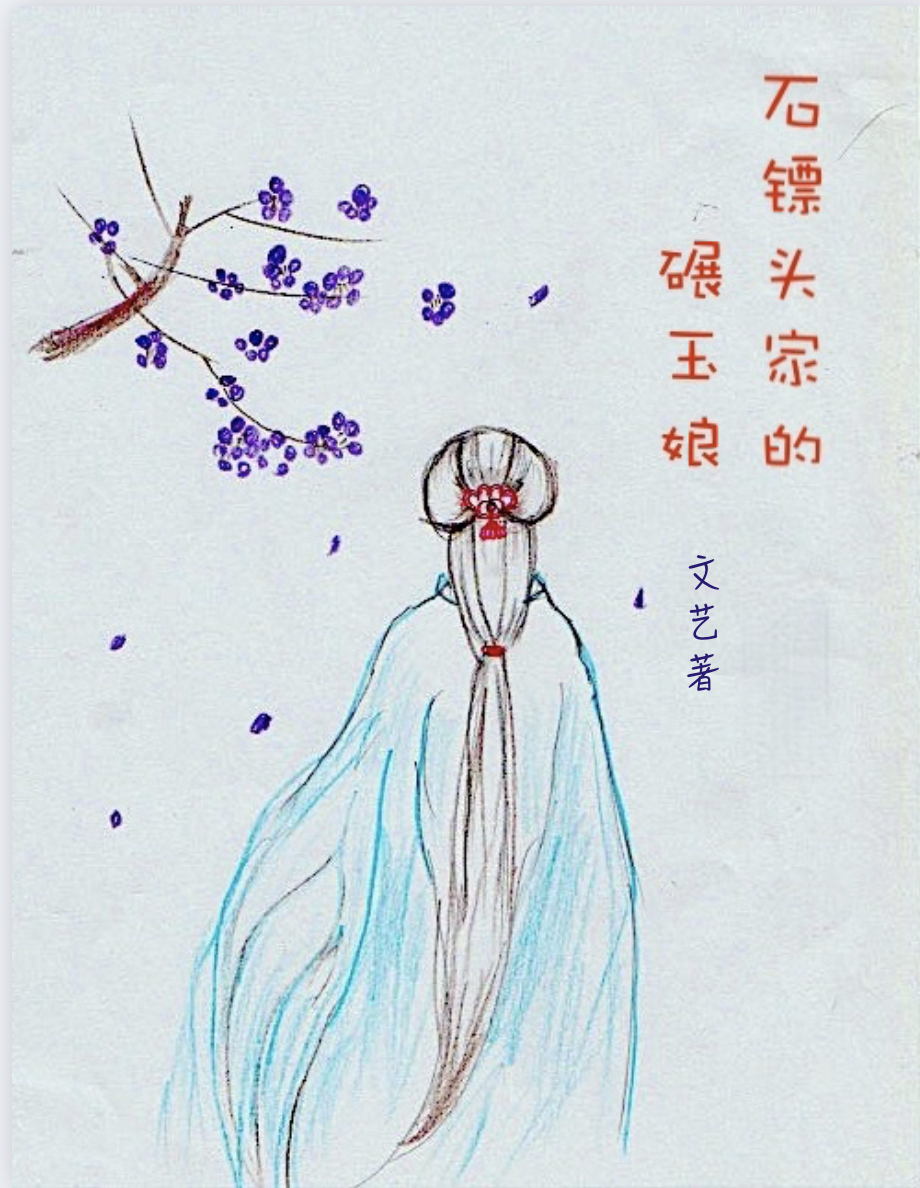 石镖头家的
碾玉娘
文艺著